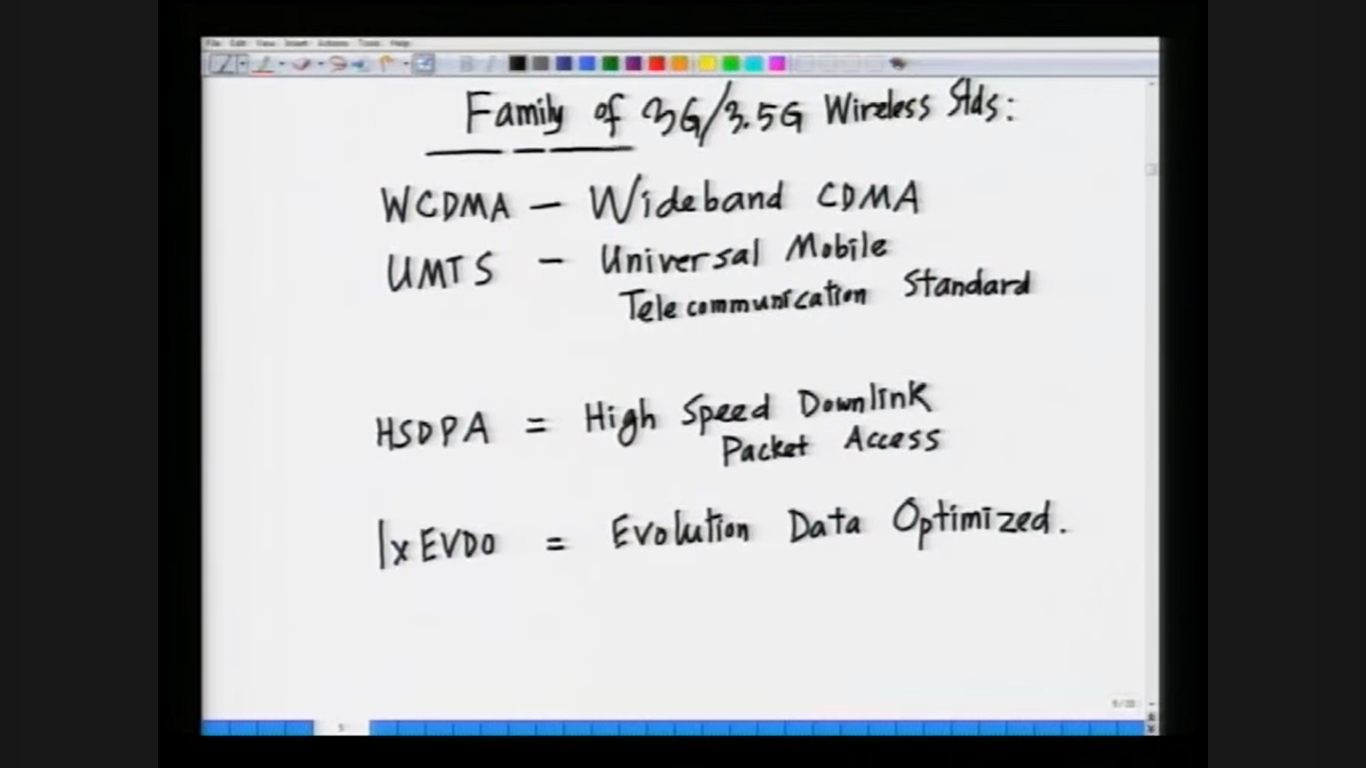 File Edit View Insert Actions Tools Help
Family of 3G/3.5G Wireless Stds:
WCDMA – Wideband CDMA
UMTS – Universal Mobile
Telecommunication Standard
HSDPA = High Speed Downlink
Packet Access
1xEVDO = Evolution Data Optimized.